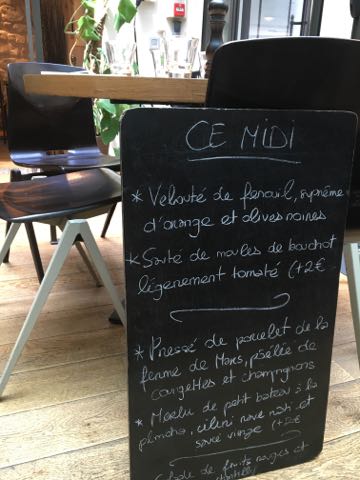 CE MIDI
* Velouté de fenouil, suprême
d'orange et olives noires
* Sauté de moules de bouchot
légèrement tomaté (+2€
* Pressé de poulet de la
ferme de Mars, poêlée de
courgettes et champignons
* Merlu de petit bateau à la
plancha, céleri rave rôti et
sauce vierge (+2€
de fruits rouges et